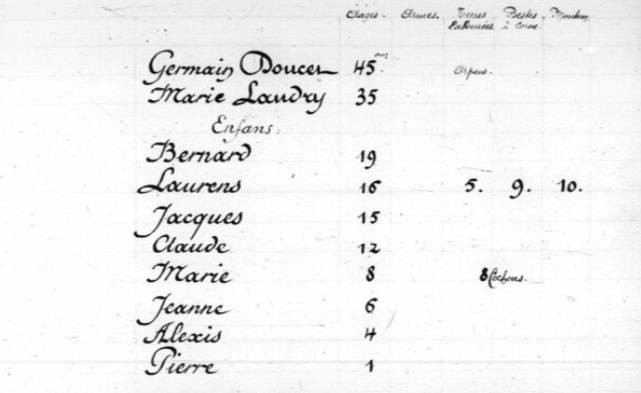 Ages. Armes. Terres Labourées. Bestes à Corne. Moutons.
Germain Doucet 45 ans Arpens.
Marie Landry 35
Enfans.
Bernard 19
Laurens 16 5. 9. 10.
Jacques 15
Claude 12
Marie 8 8 Cochons.
Jeanne 6
Alexis 4
Pierre 1